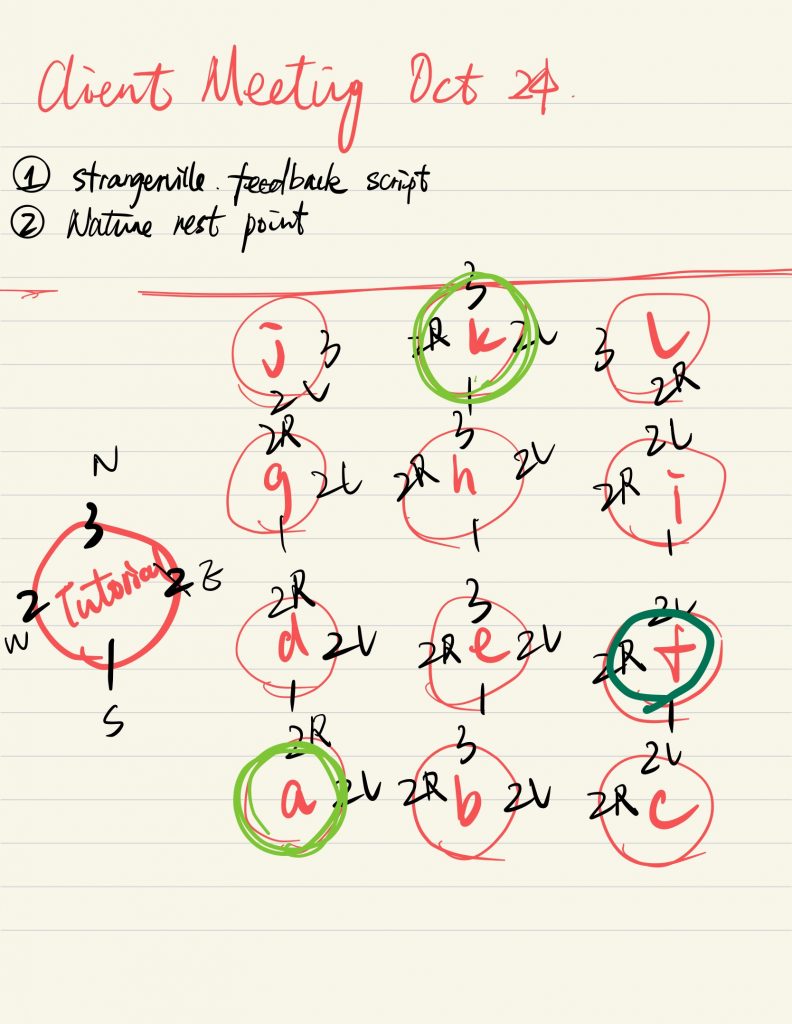 Client Meeting Oct 24.
① Strangerville. feedback script
② Nature rest point
3
j 3
2R k 2L
3 L
2L
1
2R
2R
3
2L
g 2L
2R h 2L
2R i
1
1
1
N
3
Tutorial
2
2 E
W
1
S
2R
3
2L
d 2L
2R e 2L
2R f
1
1
1
2R
3
2L
a 2L
2R b 2L
2R c